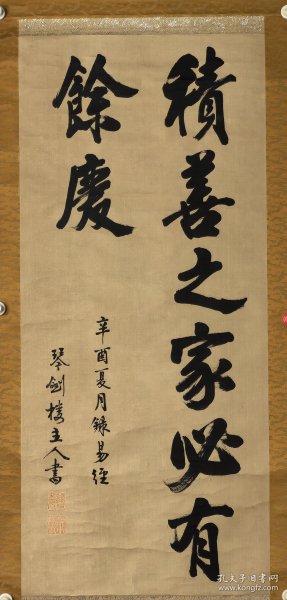 積善之家必有
餘慶
辛酉夏月錄易經
琴劍樓主人書
孔夫子旧书网